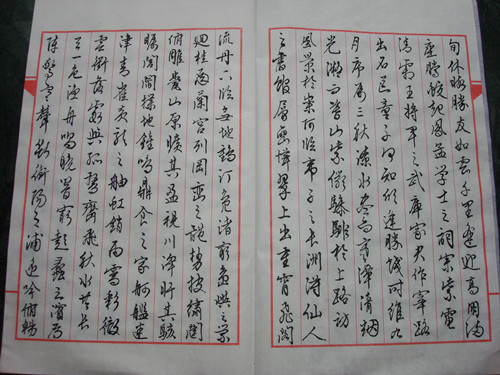 旬休暇勝友如雲千里逢迎高朋滿
座騰蛟起鳳孟學士之詞宗紫電
清霜王將軍之武庫家君作宰路
出名區童子何知躬逢勝餞時維九
月序屬三秋潦水盡而寒潭清烟
光凝而暮山紫儼驂騑於上路訪
風景於崇阿臨帝子之長洲得仙人
之舊館層巒聳翠上出重霄飛閣
流丹下臨無地鶴汀鳧渚窮島嶼之縈
迴桂殿蘭宮列岡巒之體勢披繡闥
俯雕甍山原曠其盈視川澤盱其駭
矚閭閻撲地鐘鳴鼎食之家舸艦迷
津青雀黃龍之舳虹銷雨霽彩徹
雲衢落霞與孤鶩齊飛秋水共長
天一色漁舟唱晚響窮彭蠡之濱雁
陣驚寒聲斷衡陽之浦遙吟俯暢